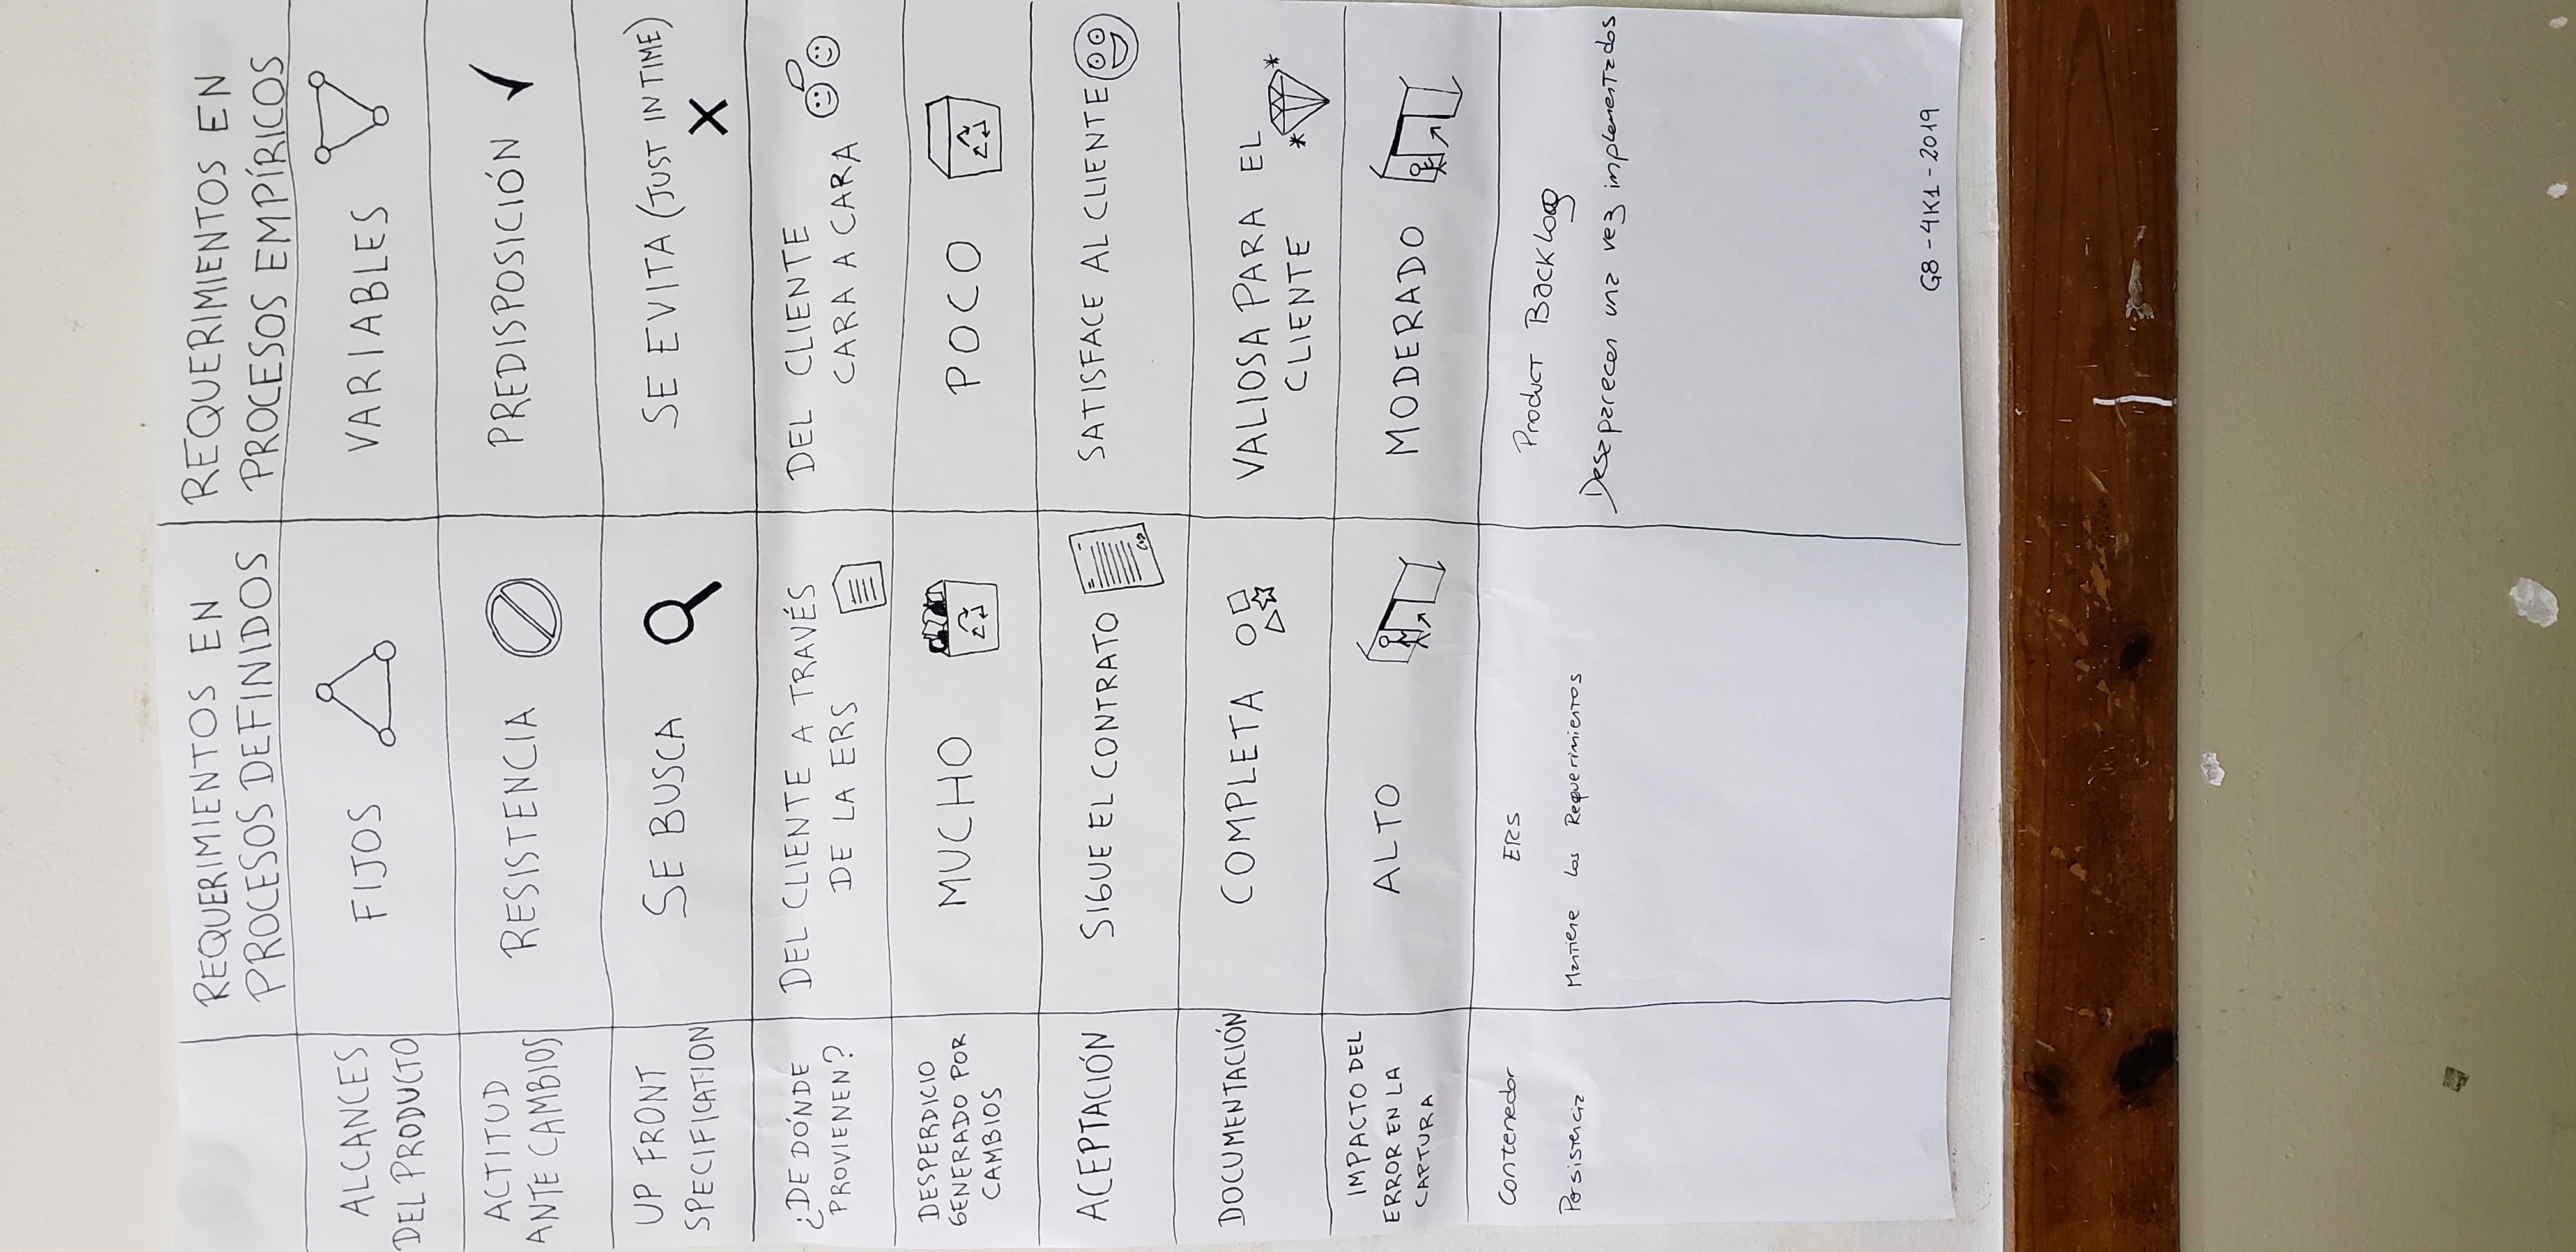 REQUERIMIENTOS EN
PROCESOS DEFINIDOS
REQUERIMIENTOS EN
PROCESOS EMPÍRICOS
ALCANCES
DEL PRODUCTO
FIJOS
VARIABLES
ACTITUD
ANTE CAMBIOS
RESISTENCIA
PREDISPOSICIÓN
UP FRONT
SPECIFICATION
SE BUSCA
SE EVITA (JUST IN TIME)
¿DE DÓNDE
PROVIENEN?
DEL CLIENTE A TRAVÉS
DE LA ERS
DEL CLIENTE
CARA A CARA
DESPERDICIO
GENERADO POR
CAMBIOS
MUCHO
POCO
ACEPTACIÓN
SIGUE EL CONTRATO
SATISFACE AL CLIENTE
DOCUMENTACIÓN
COMPLETA
VALIOSA PARA EL
CLIENTE
IMPACTO DEL
ERROR EN LA
CAPTURA
ALTO
MODERADO
Contenedor
ERS
Product Backlog
Persistencia
Mantiene los Requerimientos
Desaparecen una vez implementados
G8-4K1-2019